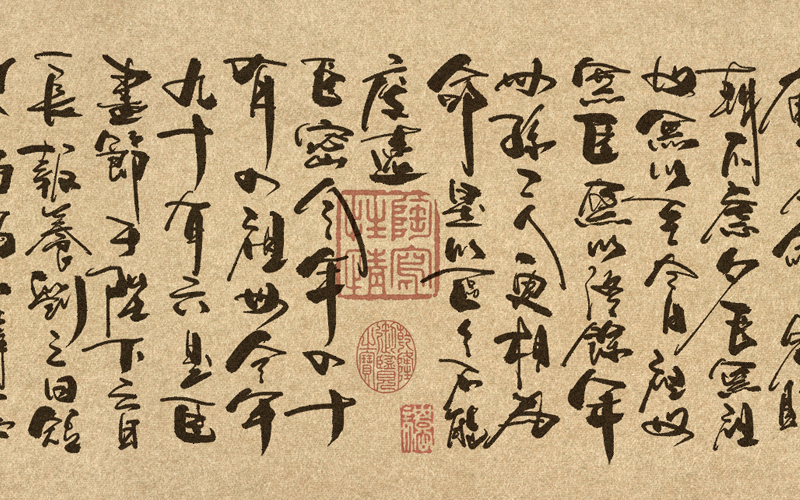 朝不慮夕臣無祖
母無以至今日祖母
無臣無以終餘年
母孫二人更相為
命是以區々不能
廢遠
臣密今年四十
有四祖母今年
九十有六是臣
盡節于陛下之日
長報養劉之日短
陶寫性情
乾隆御覽之寶